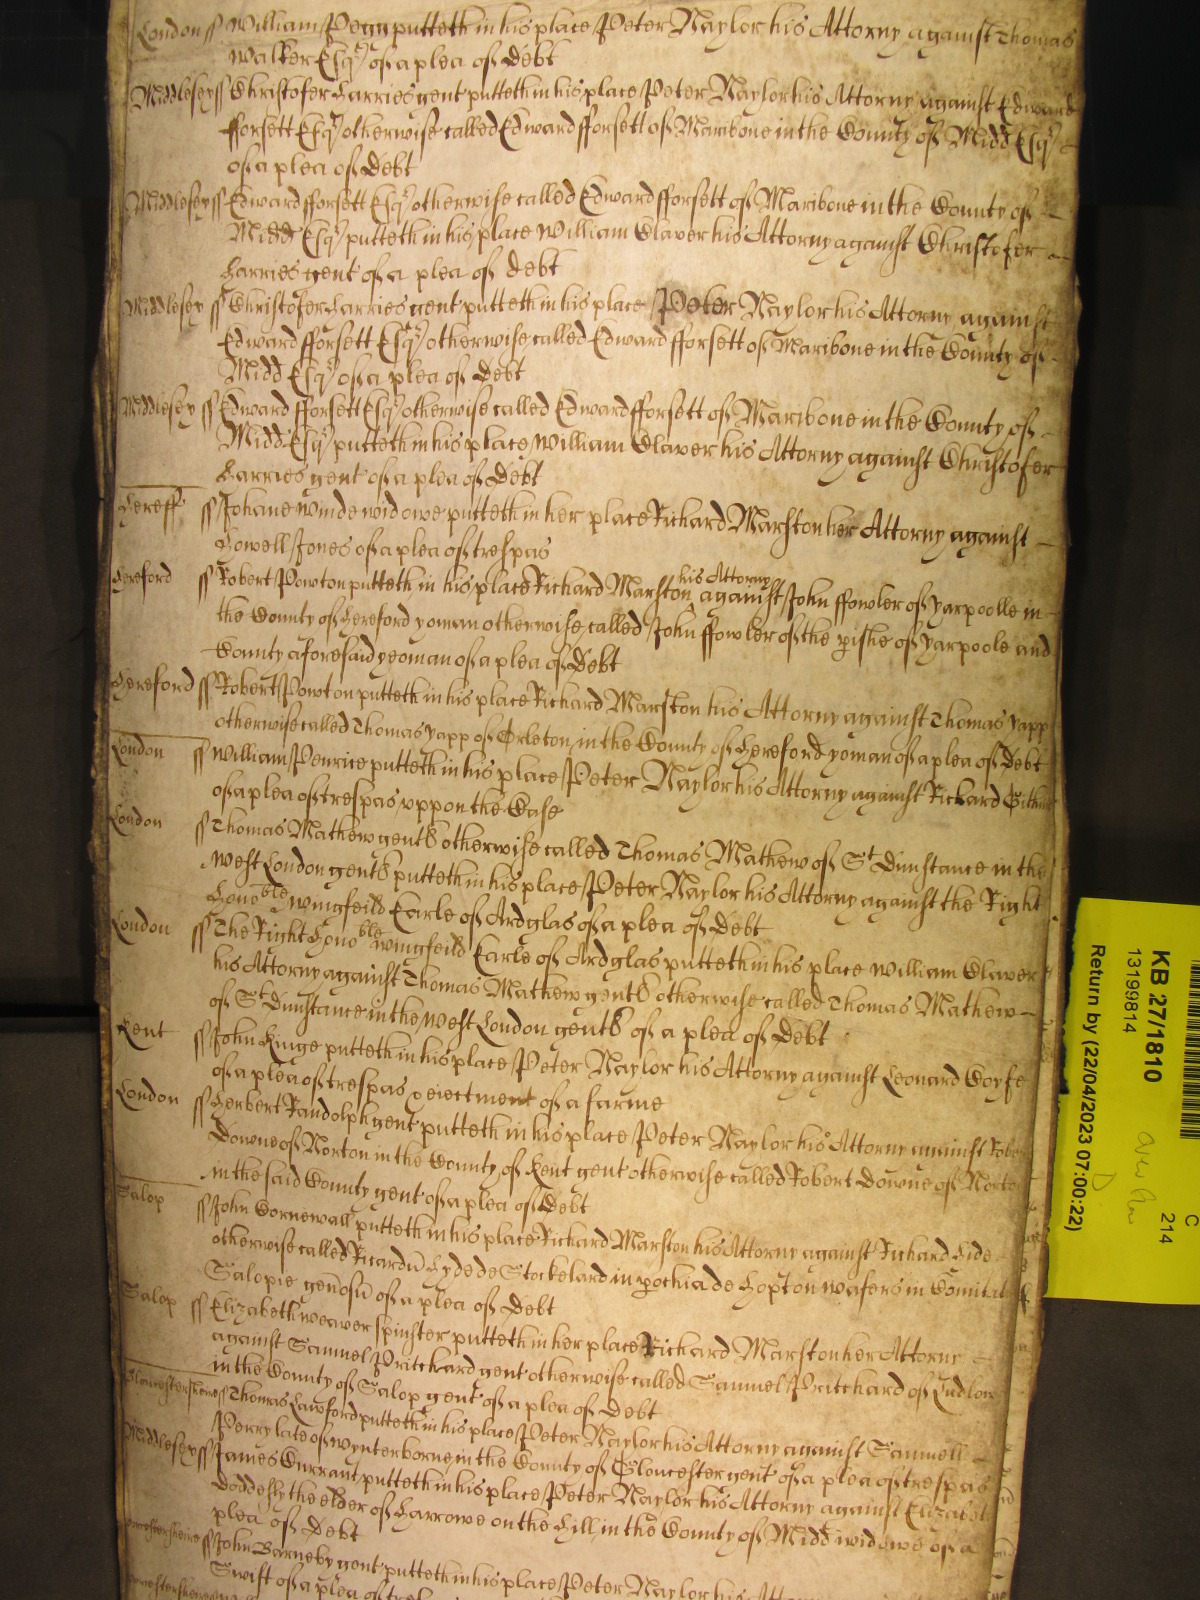 London ss William Pegg putteth in his place Peter Naylor his Attorny against Thomas
Walker Esqr of a plea of Debt
Middlesex ss Christofer Harries gent putteth in his place Peter Naylor his Attorny against Edward
fforsett Esqr otherwise called Edward fforsett of Maribone in the County of Midd Esqr
of a plea of Debt
Middlesex ss Edward fforsett Esqr otherwise called Edward fforsett of Maribone in the County of
Midd Esqr putteth in his place William Claver his Attorny against Christofer
Harries gent of a plea of Debt
Middlesex ss Christofer Harries gent putteth in his place Peter Naylor his Attorny against
Edward fforsett Esqr otherwise called Edward fforsett of Maribone in the County of
Midd Esqr of a plea of Debt
Middlesex ss Edward fforsett Esqr otherwise called Edward fforsett of Maribone in the County of
Midd Esqr putteth in his place William Claver his Attorny against Christofer
Harries gent of a plea of Debt
Hereff ss Johane Winde widowe putteth in her place Richard Marston her Attorny against
Howell Jones of a plea of trespas
Hereford ss Robert Powton putteth in his place Richard Marston his Attorny against John ffowler of Yarpoolle in
the County of Hereford yoman otherwise called John ffowler of the pishe of Yarpoole and
County aforesaid yeoman of a plea of Debt
Hereford ss Robert Powton putteth in his place Richard Marston his Attorny against Thomas Yapp
otherwise called Thomas Yapp of Orleton in the County of Hereford yoman of a plea of Debt
London ss William Penrice putteth in his place Peter Naylor his Attorny against Richard
of a plea of trespas uppon the Case
London ss Thomas Mathew gent otherwise called Thomas Mathew of St Dunstance in the
West London gent putteth in his place Peter Naylor his Attorny against the Right
Honoble Wingfeild Earle of Ardglas of a plea of Debt
London ss The Right Honoble Wingfeild Earle of Ardglas putteth in his place William Claver
his Attorny against Thomas Mathew gent otherwise called Thomas Mathew
of St Dunstance in the West London gent of a plea of Debt
Kent ss John Kinge putteth in his place Peter Naylor his Attorny against Leonard Coyfe
of a plea of trespas & eiectment of a farme
London ss Herbert Randolph gent putteth in his place Peter Naylor his Attorny against Robert
Downe of Norton in the County of Kent gent otherwise called Robert Downe of Norton
in the said County gent of a plea of Debt
Salop ss John Cornewall putteth in his place Richard Marston his Attorny against Richard Hide
otherwise called Ricardu Hyde de Stockelard in pochia de Hopton wafers in Comitat
Salopie genosu of a plea of Debt
Salop ss Elizabeth Weaver spinster putteth in her place Richard Marston her Attorny
against Samuel Pritchard gent otherwise called Samuel Pritchard of Ludlow
in the County of Salop gent of a plea of Debt
Gloucestersheere ss Thomas Lawford putteth in his place Peter Naylor his Attorny against Samuell
Perry late of Wynterborne in the County of Gloucester gent of a plea of trespas
Middlesex ss James Currant putteth in his place Peter Naylor his Attorny against Elizabeth
Doddesly the elder of Harrowe on the Hill in the County of Midd widowe of a
plea of Debt
ss John Barneby gent putteth in his place Peter Naylor his
Swift of a plea of
KB 27/1810
13199814
Return by (22/04/2023 07:00:22)
C
214
D